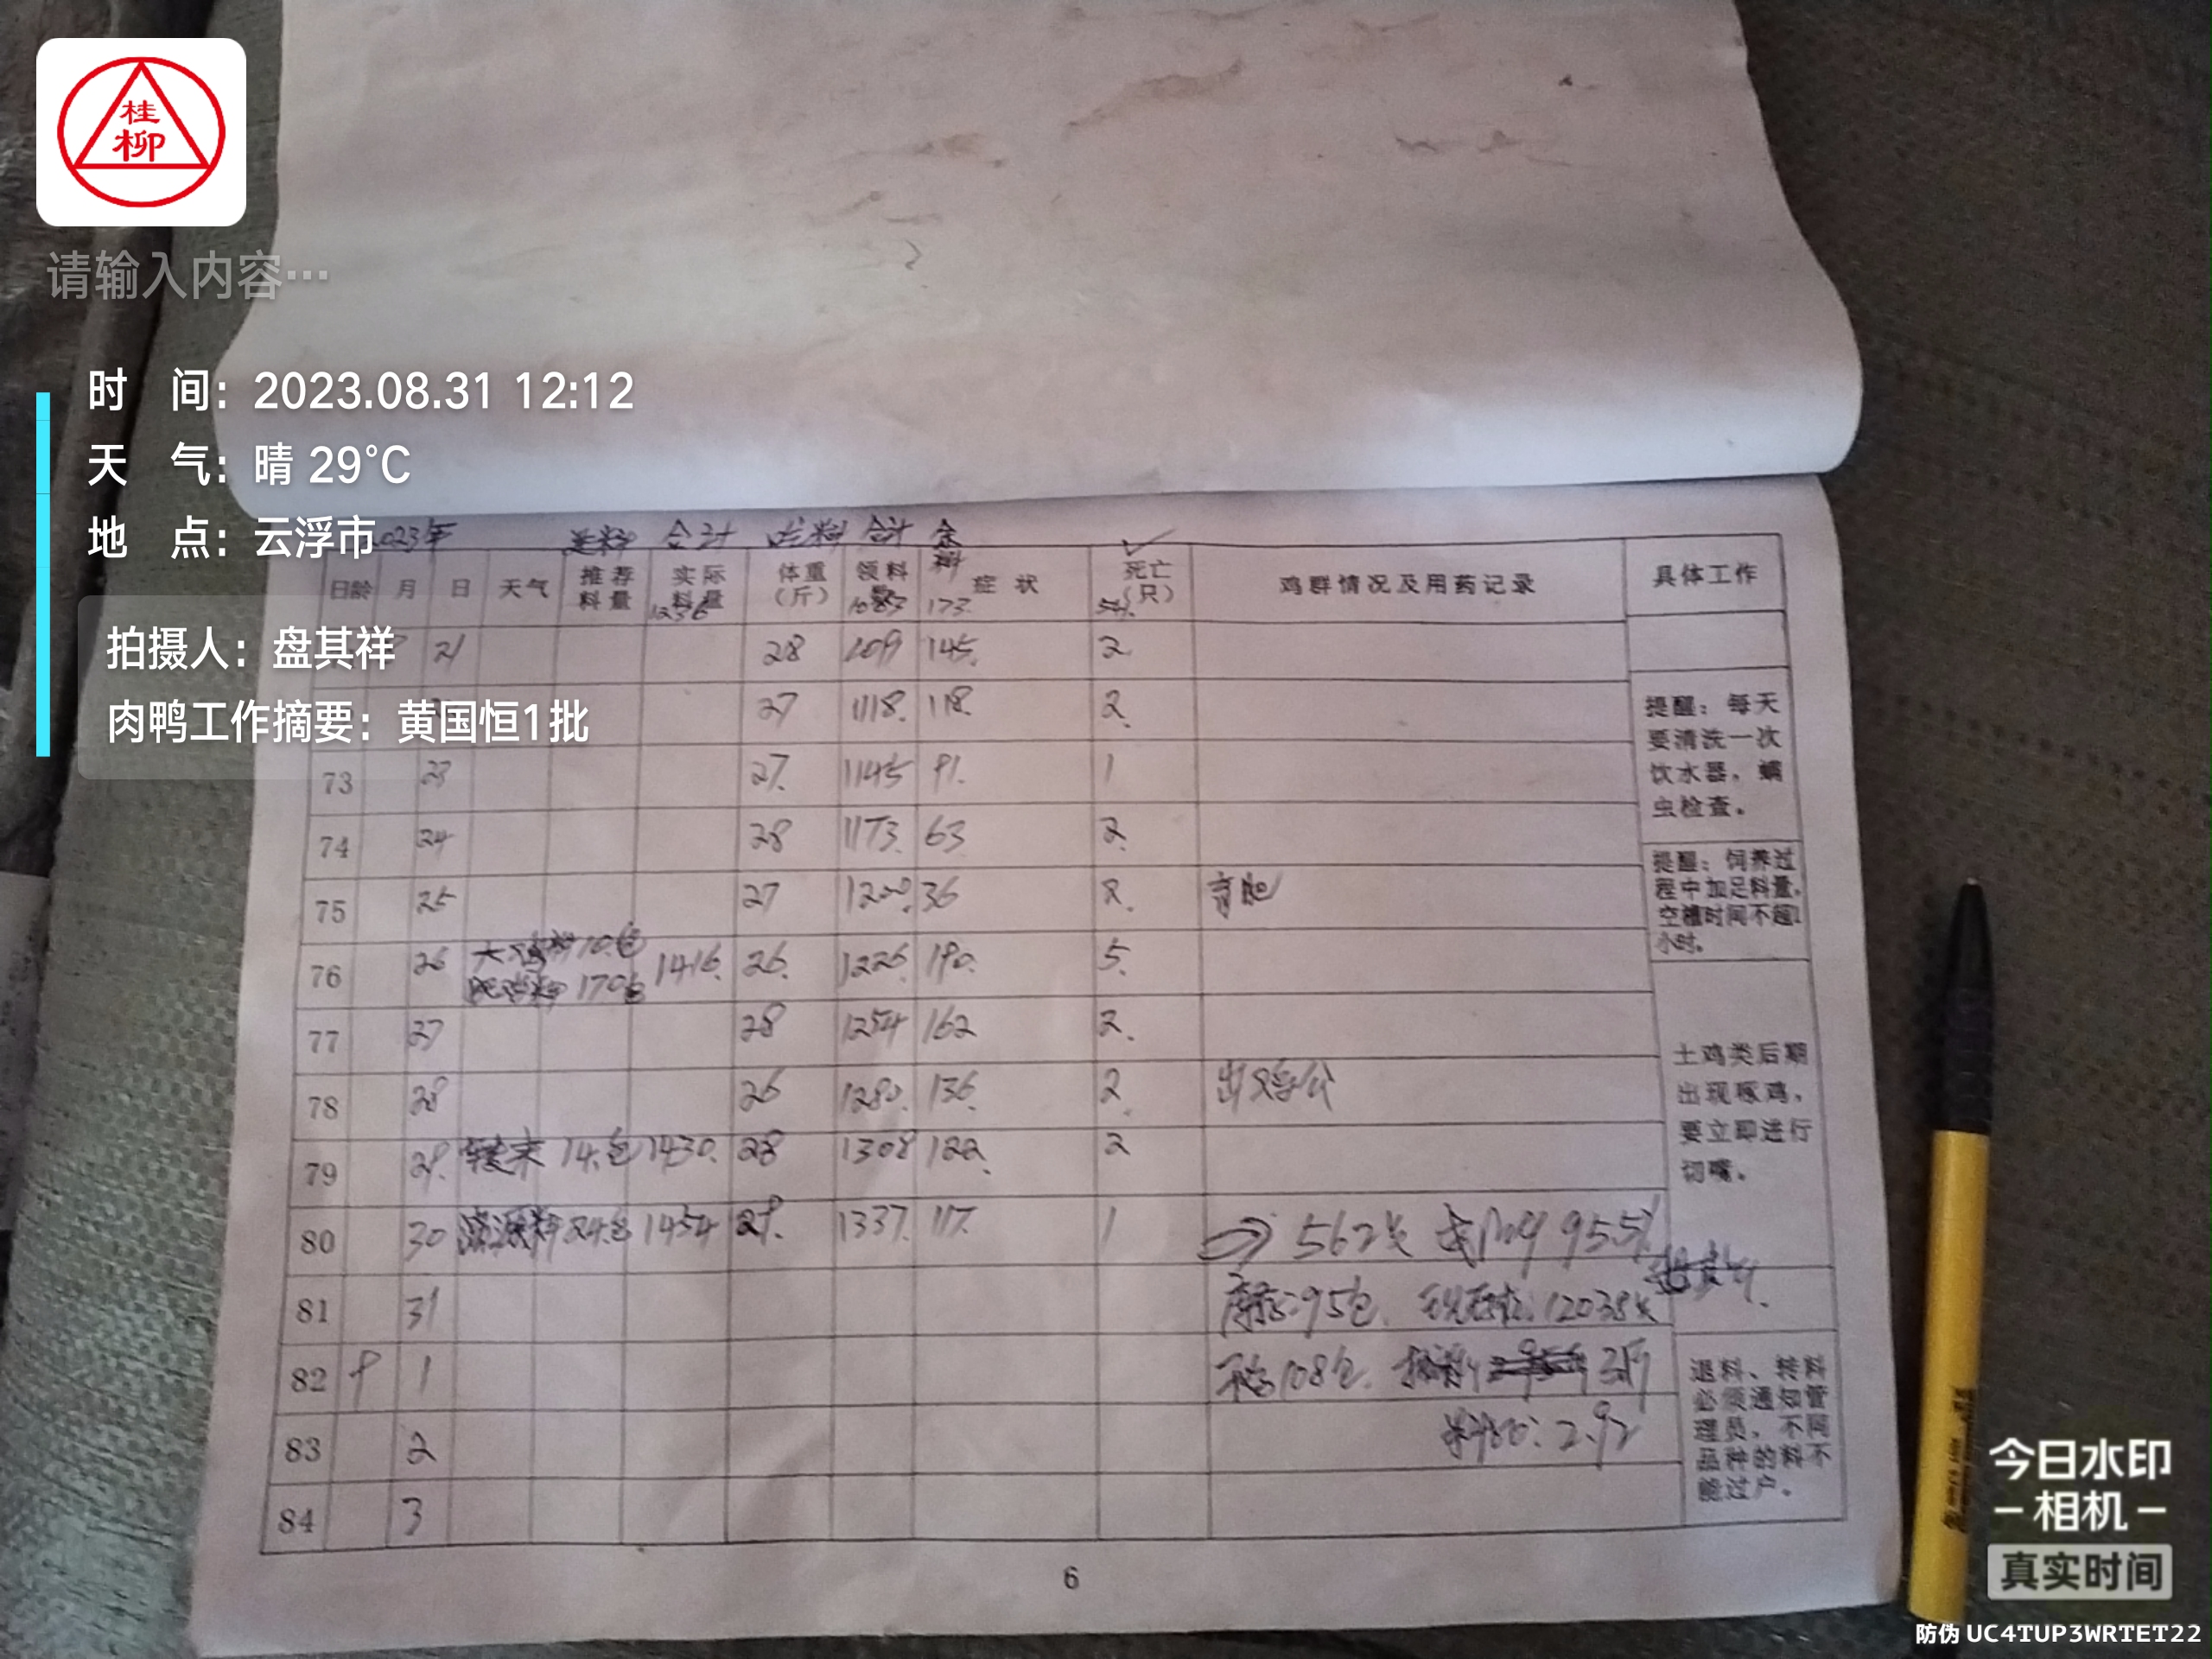 桂
柳
请输入内容…
时 间：2023.08.31 12:12
天 气：晴 29°C
地 点：云浮市
拍摄人：盘其祥
肉鸭工作摘要：黄国恒1批
2023年 合计 吃料 合计 余料
日龄 月 日 天气 推荐料量 实际料量 体重（斤） 领料 症状 死亡（只） 鸡群情况及用药记录 具体工作
1236 1083 173.
21 28 1109 145. 2.
27 1118. 118. 2.
73 23 27. 1145 91. 1
74 24 28 1173. 63 2.
75 25 27 1200. 36 8.
76 26 10包 170包 1416. 26. 1226 190. 5.
77 27 28 1254 162 2.
78 28 26 1280. 136. 2
79 29. 14包 1430. 28 1308 122. 2
80 30 24包 1454 29. 1337. 117. 1 562只 95.5%
81 31 库存:95包. 12038只
82 9 1 108包. 3斤
83 2 2.92
84 3
提醒：每天
要清洗一次
饮水器，螨
虫检查。
提醒：饲养过
程中加足料量，
空槽时间不超1
小时。
土鸡类后期
出现啄鸡，
要立即进行
切嘴。
退料、转料
必须通知管
理员，不同
品种的料不
能过户。
6
今日水印
相机
真实时间
防伪 UC4TUP3WRTET22